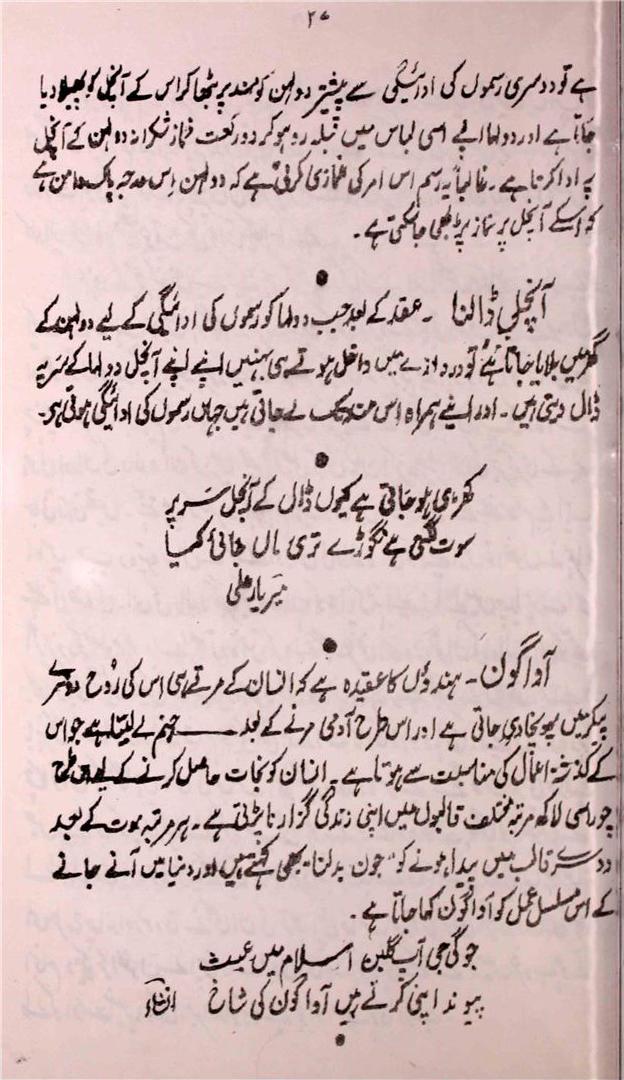 ۲۷
ہے تو دوسری رسموں کی ادائیگی سے پیشتر دولہن کو مسند پر بٹھا کر اس کے آنچل کو پھیلا دیا
جاتا ہے اور دولہا اپنے اسی لباس میں قبلہ رو ہو کر دو رکعت نماز شکرانہ دولہن کے آنچل
پہ ادا کرتا ہے ۔ غالباً یہ رسم اس امر کی غمازی کرتی ہے کہ دولہن اس درجہ پاک دامن ہے
کہ اسکے آنچل پر نماز پڑھی جا سکتی ہے ۔
آنچل ڈالنا ۔ عقد کے بعد جب دولہا کو رسموں کی ادائیگی کے لیے دولہن کے
گھر میں بلایا جاتا ہے تو دروازے میں داخل ہوتے ہی بہنیں اپنے اپنے آنچل دولہا کے سر پہ
ڈال دیتی ہیں ۔ اور اپنے ہمراہ اس مسند تک لے جاتی ہیں جہاں رسموں کی ادائیگی ہوتی ہے۔
کھڑی ہو جاتی ہے کیوں ڈال کے آنچل سر پر
سوت لگتی ہے نگوڑے تری ماں جائی کیا
میر یار علی
آواگون ۔ ہندوؤں کا عقیدہ ہے کہ انسان کے مرتے ہی اس کی روح دوسرے
پیکر میں پہونچا دی جاتی ہے اور اس طرح آدمی مرنے کے بعد جنم لے لیتا ہے جو اس
کے گذشتہ اعمال کی مناسبت سے ہوتا ہے ۔ انسان کو نجات حاصل کرنے کے لیے اس طرح
چوراسی لاکھ مرتبہ مختلف قالبوں میں اپنی زندگی گزارنا پڑتی ہے ۔ ہر مرتبہ موت کے بعد
دوسرے قالب میں پیدا ہونے کو "جون بدلنا" بھی کہتے ہیں اور دنیا میں آنے جانے
کے اس مسلسل عمل کو آواگون کہا جاتا ہے ۔
جوگی جی آپ گلبن اسلام میں عبث
پیوند اپنی کرتے ہیں آواگون کی شاخ انشاء